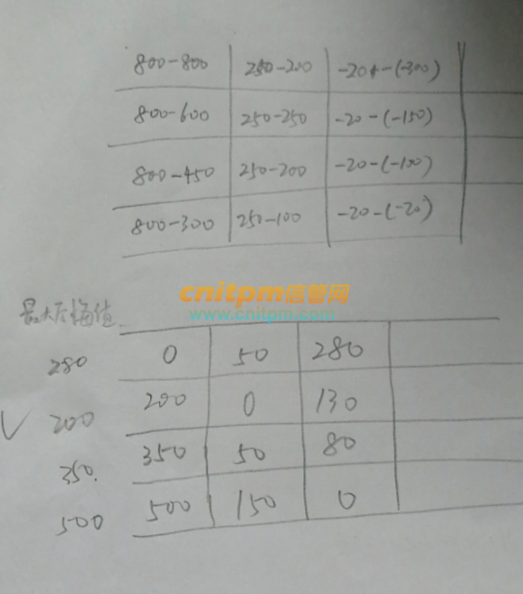 800-800 250-200 -20+-(-300)
800-600 250-250 -20-(-150)
800-450 250-200 -20-(-100)
800-300 250-100 -20-(-20)
cnitpm信管网
www.cnitpm.com
最大后悔值
280 0 50 280
√ 200 200 0 130
350. 350 50 80
500 500 150 0